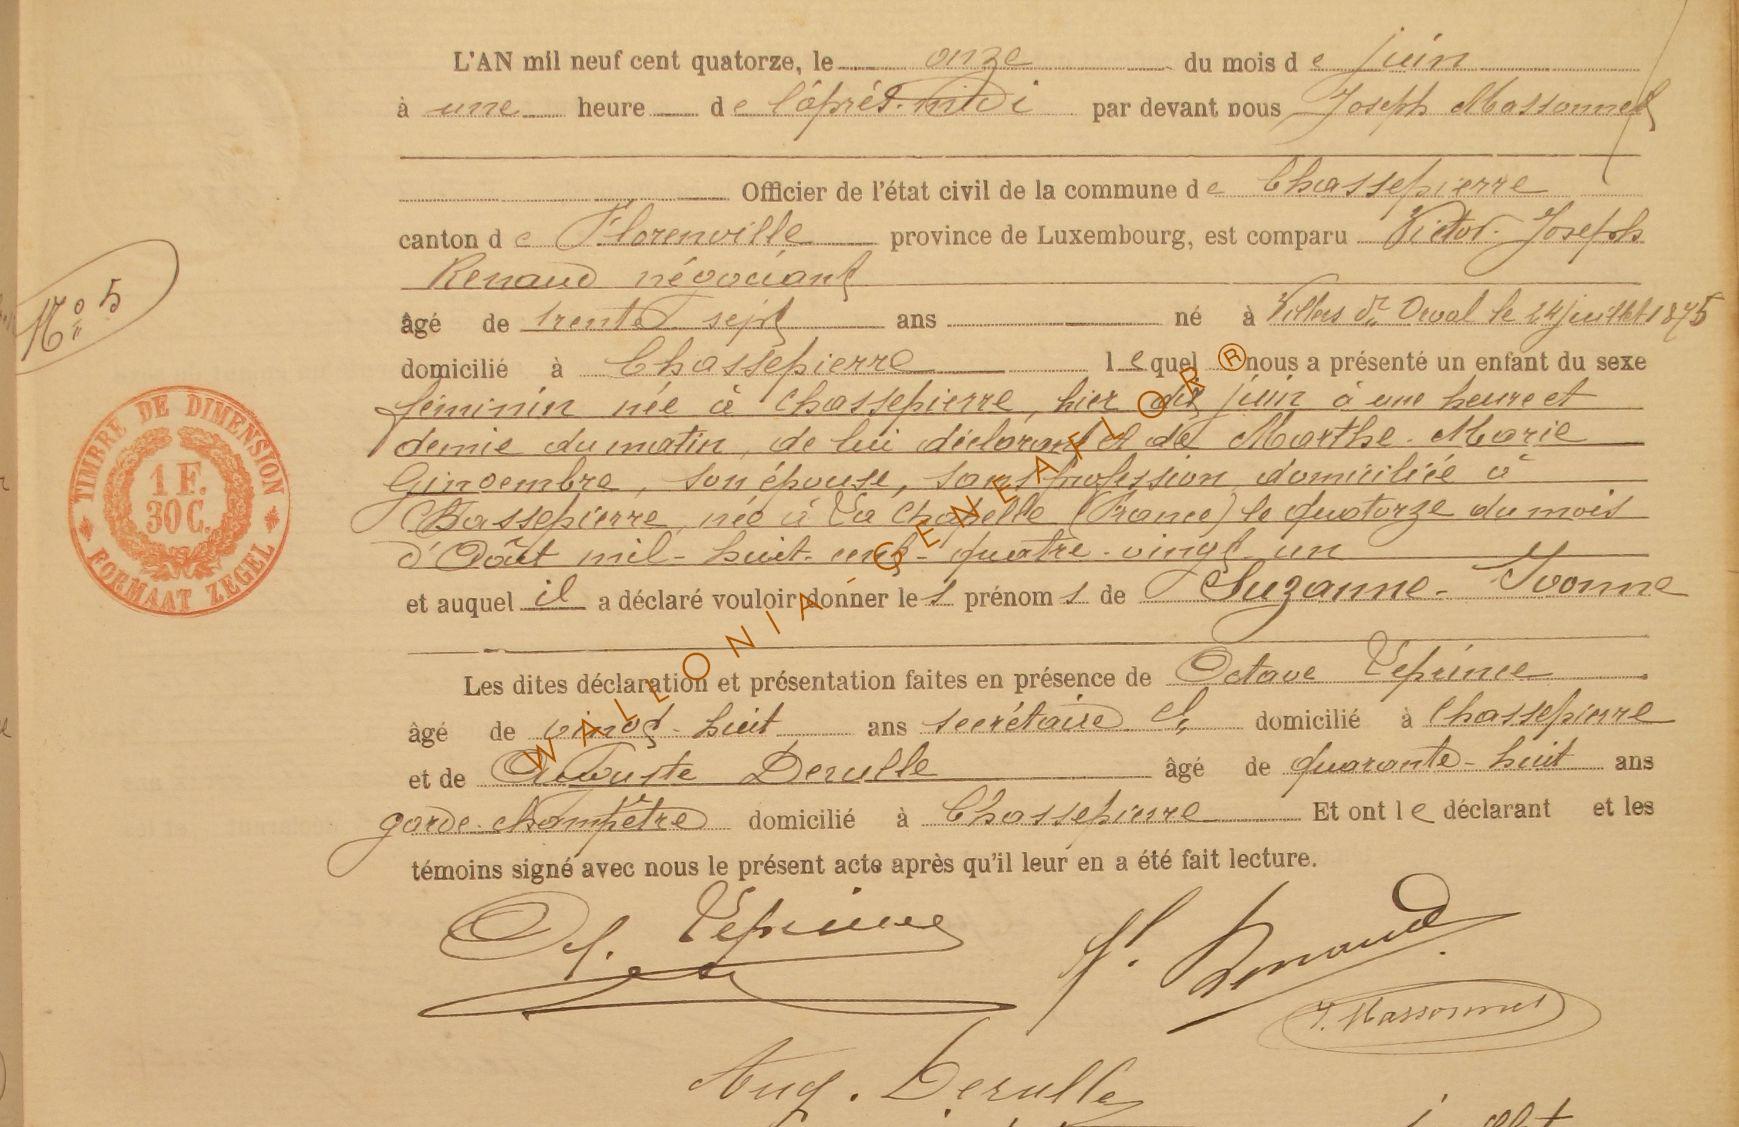 L'AN mil neuf cent quatorze, le onze du mois de juin
à une heure de l'après-midi par devant nous Joseph Massonnet
Officier de l'état civil de la commune de Chassepierre
canton de Florenville province de Luxembourg, est comparu Victor-Joseph
Renaud négociant
âgé de trente sept ans né à Villers dt Orval le 24 juillet 1875
N° 5
domicilié à Chassepierre lequel nous a présenté un enfant du sexe
féminin née à Chassepierre, hier dix juin à une heure et
demie du matin, de lui déclarant et de Marthe-Marie
Gindembre, son épouse, sans profession, domiciliée à
Chassepierre, née à La Chapelle (France) le quatorze du mois
d'Août mil-huit-cent-quatre-vingt-un
et auquel il a déclaré vouloir donner les prénoms de Suzanne-Yvonne
Les dites déclaration et présentation faites en présence de Octave Leprince
âgé de vingt-huit ans secrétaire cl, domicilié à Chassepierre
et de Auguste Derulle âgé de quarante-huit ans
garde-champêtre domicilié à Chassepierre Et ont le déclarant et les
témoins signé avec nous le présent acte après qu'il leur en a été fait lecture.
Leprince
Renaud
J. Massonnet
Aug. Derulle
TIMBRE DE DIMENSION
1 F.
30 C.
FORMAAT ZEGEL
WALLONIA GENEAFLOR ®